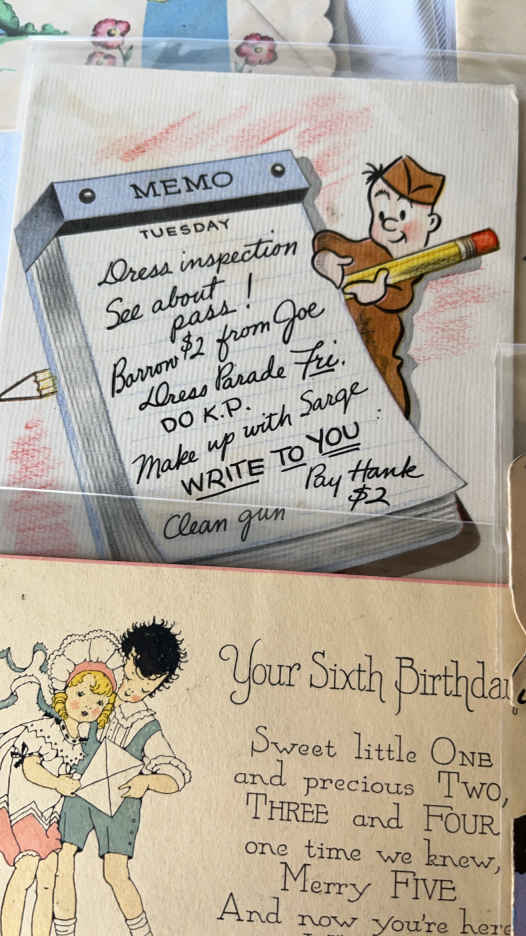 MEMO
TUESDAY
Dress inspection
See about
pass!
Borrow $2 from Joe
Dress Parade Fri.
DO K.P.
Make up with Sarge
WRITE TO YOU
Pay Hank
$2
Clean gun
Your Sixth Birthday
Sweet little ONE
and precious TWO,
THREE and FOUR
one time we knew,
Merry FIVE
And now you're here